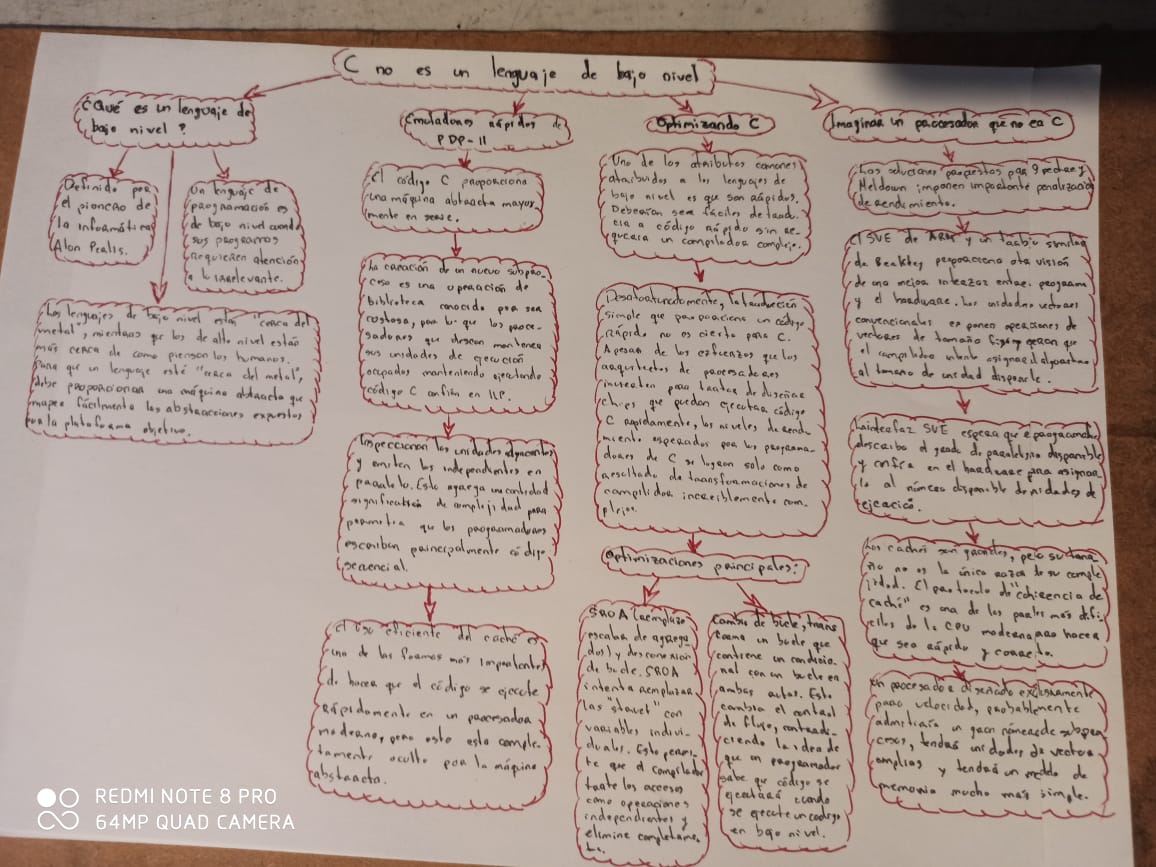 C no es un lenguaje de bajo nivel
¿Qué es un lenguaje de
bajo nivel?
Definido por
el pionero de
la informática
Alan Perlis.
Un lenguaje de
programación es
de bajo nivel cuando
sus programas
requieren atención
a lo irrelevante.
Los lenguajes de bajo nivel están "cerca del
metal", mientras que los de alto nivel están
más cerca de como piensan los humanos.
Para que un lenguaje esté "cerca del metal",
debe proporcionar una máquina abstracta que
mapee fácilmente las abstracciones expuestas
por la plataforma objetivo.
Emuladores rápidos de
PDP-11
El código C proporciona
una máquina abtracta mayor
mente en serie.
La creación de un nuevo subpro-
ceso es una operación de
biblioteca conocida por ser
costosa, por lo que los proce-
sadores que desean mantener
sus unidades de ejecución
ocupados manteniendo ejecutando
código C confían en ILP.
Inspeccionan las unidades adyacentes
y emiten las independientes en
paralelo. Esto agrega una cantidad
significativa de complejidad para
permitir que los programadores
escriban principalmente código
secuencial.
El uso eficiente del caché es
una de las formas más importantes
de hacer que el código se ejecute
rápidamente en un procesador
moderno, pero esto esta comple-
tamente oculto por la máquina
abstracta.
Optimizando C
Uno de los atributos comunes
atribuidos a los lenguajes de
bajo nivel es que son rápidos.
Deberían ser fáciles de tradu
cir a código rápido sin re-
querir un compilador complejo.
Desafortunadamente, la traducción
simple que proporciona un código
rápido no es cierto para C.
Apesar de los esfuerzos que los
arquitectos de procesadores
invierten para tratar de diseñar
chips que puedan ejecutar código
C rapidamente, los niveles de rendi-
miento esperados por los programa-
dores de C se logran solo como
resultado de transformaciones de
compilidor increíblemente com-
plejas.
Optimizaciones principales:
SROA (reemplazo
escalar de agrega
dos) y desconexión
de bucle. SROA
intenta remplazar
las con
variables indivi-
duales. Esto permi-
te que el compilador
trate los accesos
como operaciones
independientes y
elimine completame.
Cambio de bucle, trans
forma un bucle que
contiene un condicio-
nal con un bucle en
ambas Esto
cambia el control
de flujo, contradi-
ciendo la idea de
que un programador
sabe que código se
ejecutará cuando
se ejecute un código
en bajo nivel.
Imaginar un procesador que no ea C
Las soluciones propuestas por Spectre y
Meldown imponen importante penalización
de rendimiento.
El SVE de ARM y un similar
de Berkley proporciona otra visión
de una mejor interfaz entre programa
y el hardware. Las unidades vectores
convencionales exponen operaciones de
vectores de tamaño fijo y que
el compilador intente asignar el algoritmo
al tamaño de unidad disponible.
La interfaz SVE espera que el programador
describa el grado de paralelismo disponible
y confía en el hardware para asignar
lo al número disponible de unidades de
ejecución.
Los cachés son grandes, pero su tama
ño no es la única razón de su comple
jidad. El protocolo de "cohirencia de
caché" es una de las partes más difí-
ciles de la CPU moderna para hacer
que sea rápido y correcto.
Un procesador diseñado exclusivamente
para velocidad, probablemente
admitiría un gran número de subpro
cesos, tendrá unidades de vector
amplias y tendrá un modelo de
memoria mucho más simple.
REDMI NOTE 8 PRO
64MP QUAD CAMERA